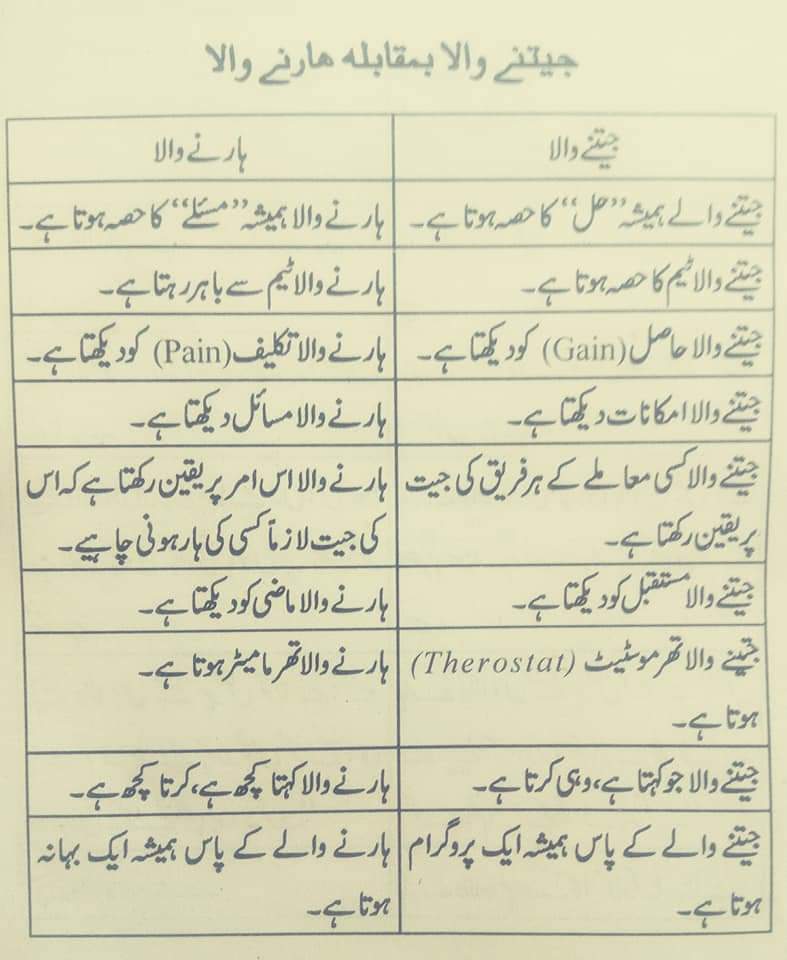 جیتنے والا بمقابلہ ہارنے والا
جیتنے والا
ہارنے والا
جیتنے والے ہمیشہ ”حل“ کا حصہ ہوتا ہے۔
ہارنے والا ہمیشہ ”مسئلے“ کا حصہ ہوتا ہے۔
جیتنے والا ٹیم کا حصہ ہوتا ہے۔
ہارنے والا ٹیم سے باہر رہتا ہے۔
جیتنے والا حاصل (Gain) کو دیکھتا ہے۔
ہارنے والا تکلیف (Pain) کو دیکھتا ہے۔
جیتنے والا امکانات دیکھتا ہے۔
ہارنے والا مسائل دیکھتا ہے۔
جیتنے والا کسی معاملے کے ہر فریق کی جیت
پر یقین رکھتا ہے۔
ہارنے والا اس امر پر یقین رکھتا ہے کہ اس
کی جیت لازماً کسی کی ہار ہونی چاہیے۔
جیتنے والا مستقبل کو دیکھتا ہے۔
ہارنے والا ماضی کو دیکھتا ہے۔
جیتنے والا تھرموسٹیٹ (Therostat)
ہوتا ہے۔
ہارنے والا تھرمامیٹر ہوتا ہے۔
جیتنے والا جو کہتا ہے، وہی کرتا ہے۔
ہارنے والا کہتا کچھ ہے، کرتا کچھ ہے۔
جیتنے والے کے پاس ہمیشہ ایک پروگرام
ہوتا ہے۔
ہارنے والے کے پاس ہمیشہ ایک بہانہ
ہوتا ہے۔